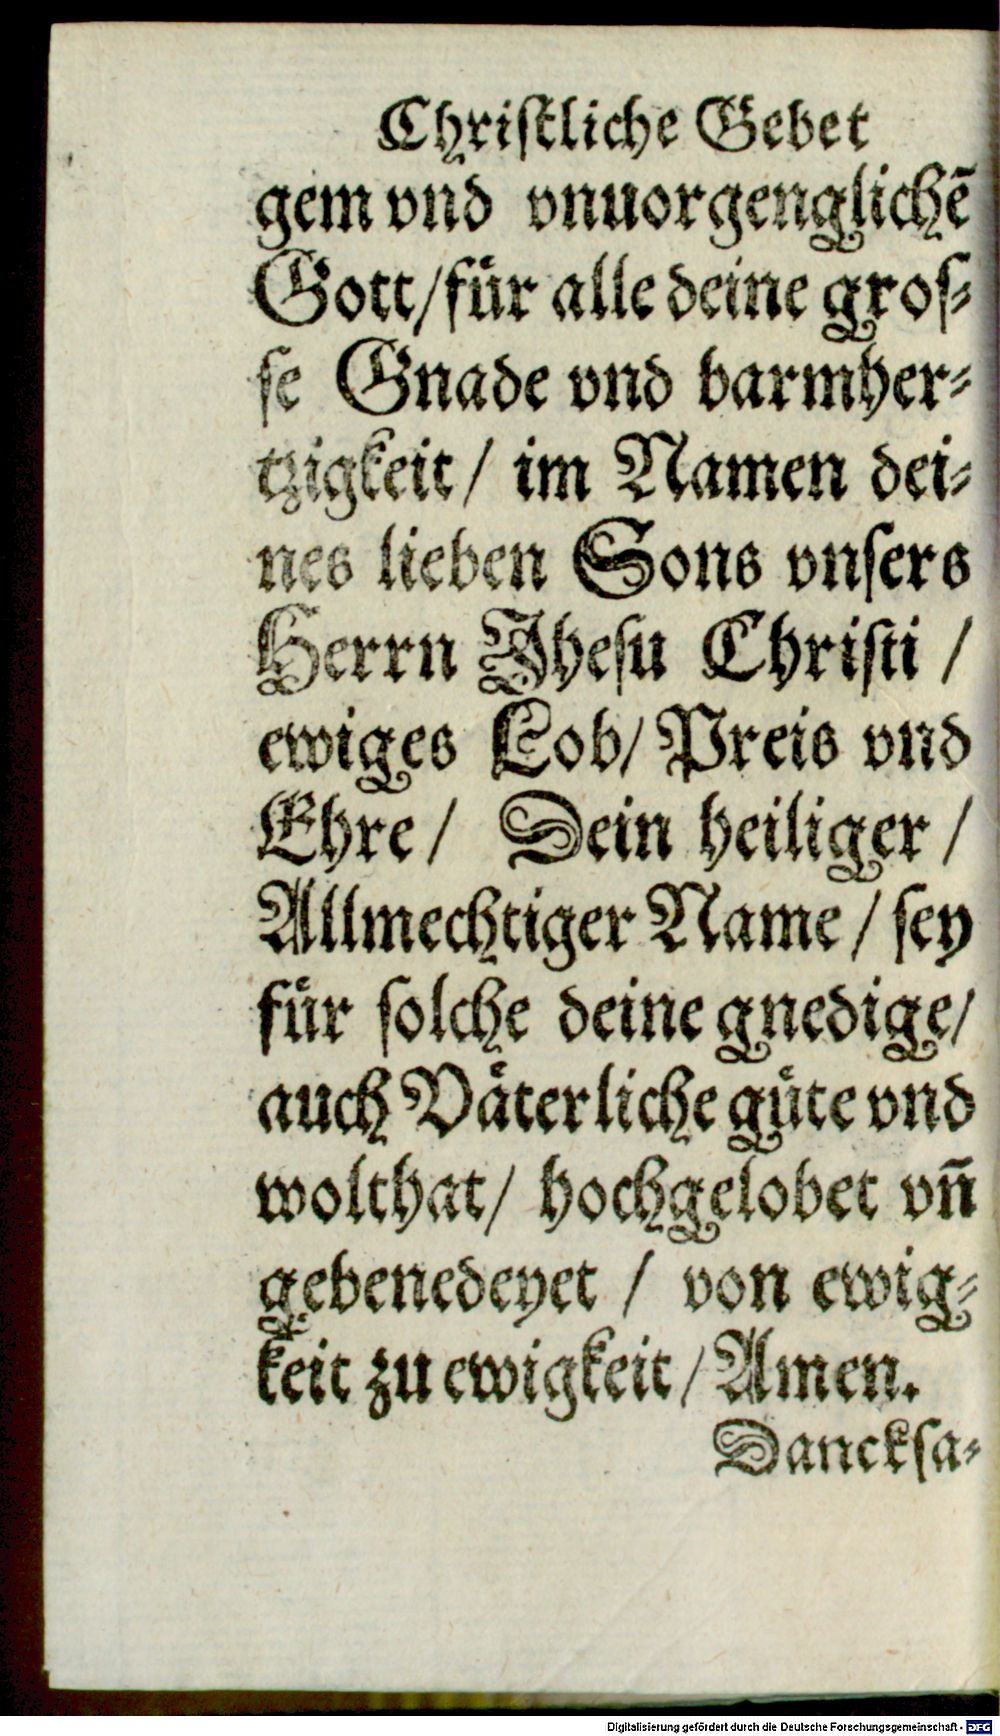 Chriſtliche Gebet
gem vnd vnuorgenglichē
Gott/für alle deine groſ⸗
ſe Gnade vnd barmher⸗
tzigkeit/ im Namen dei⸗
nes lieben Sons vnſers
Herrn Jheſu Chriſti /
ewiges Lob/ Preis vnd
Ehre/ Dein heiliger /
Allmechtiger Name / ſey
für ſolche deine gnedige/
auch Väterliche güte vnd
wolthat/ hochgelobet vn̄
gebenedeyet / von ewig⸗
keit zu ewigkeit/ Amen.
Danckſa⸗
Digitalisierung gefördert durch die Deutsche Forschungsgemeinschaft - DFG